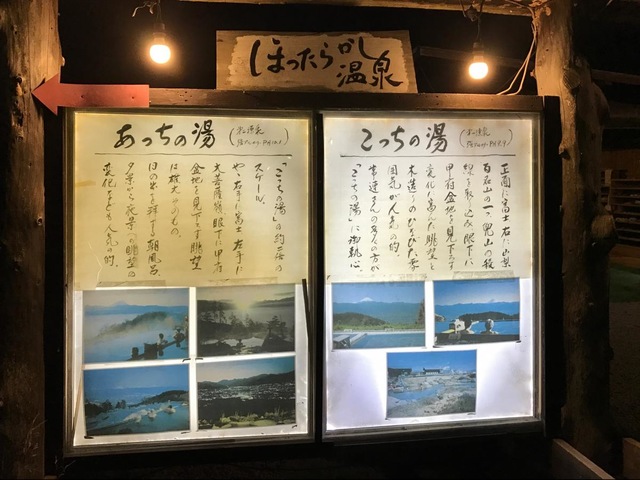 ほったらかし
温泉
あっちの湯
PH10.1
「こっちの湯」の約二倍の
スケール。
やゝ右手に富士 左手に
大菩薩嶺 眼下に甲府
盆地を見下ろす眺望
は雄大そのもの。
日の出を拝する朝風呂
夕景から夜景への眺望の
変化なども人気の的。
こっちの湯
PH9.9
正面に富士 右に山梨
百名山の一つ、兜山の稜
線を取り込み 眼下に
甲府盆地を見下ろす
変化に富んだ眺望と
木造りのひなびた雰
囲気が人気の的。
常連さんの多くの方が
「こっちの湯」に御執心。